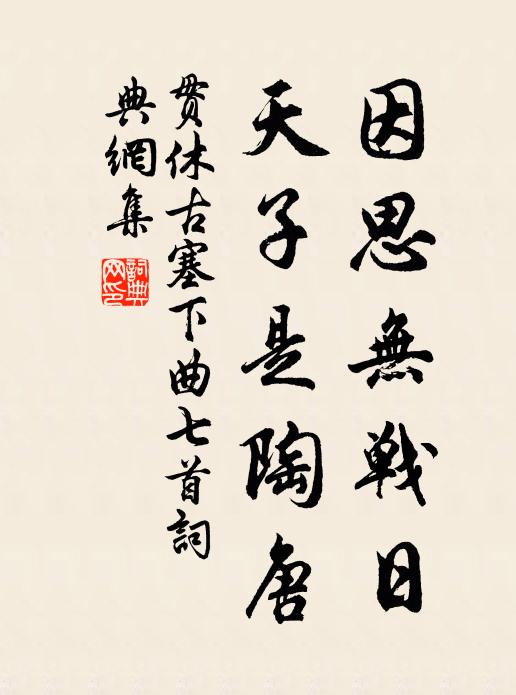 因思無戦日
天子是陶唐
贯休古塞下曲七首詞
典網集
詞典
网印